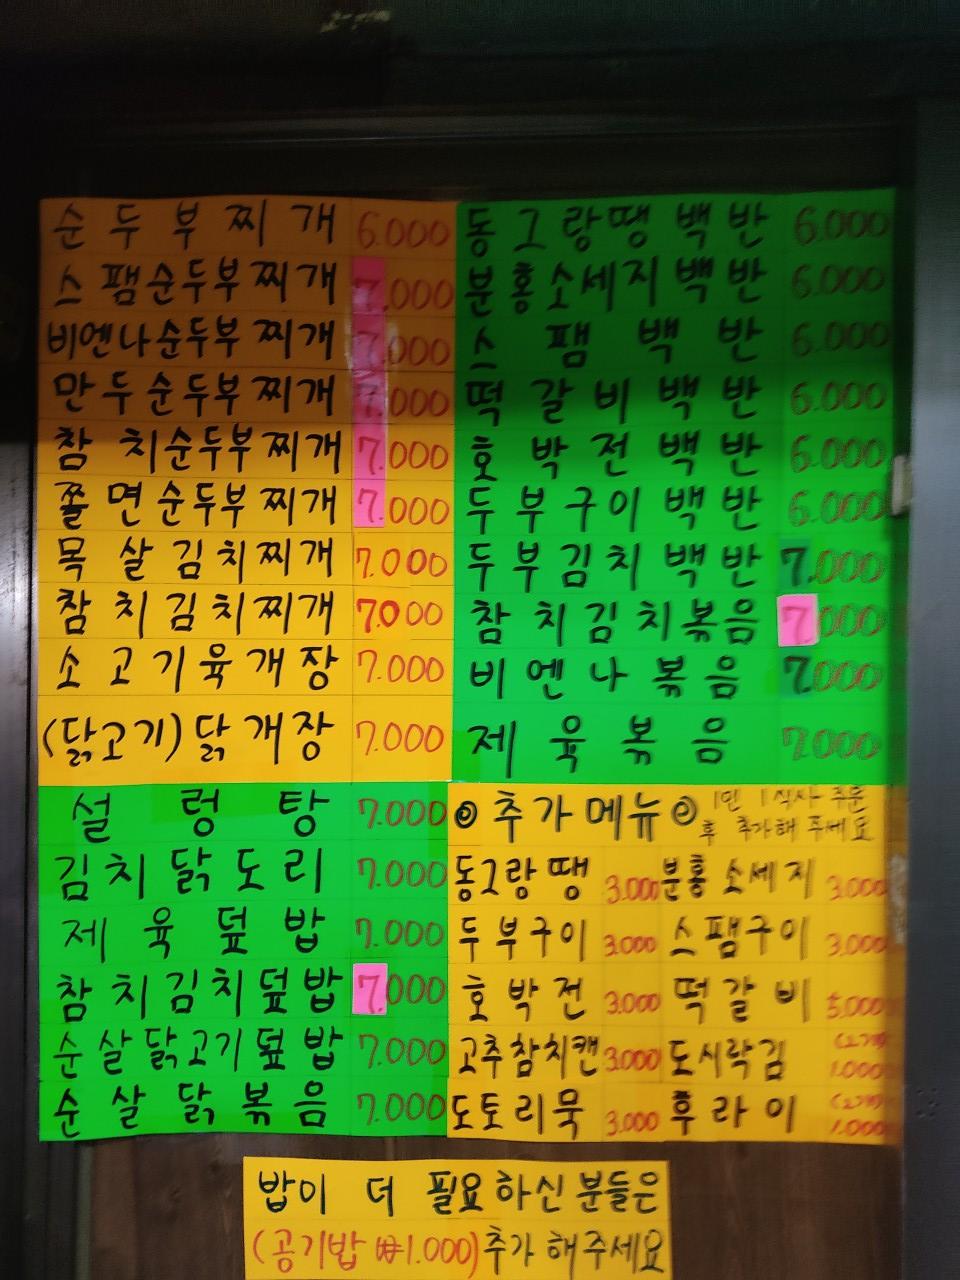 순두부찌개 6.000
스팸순두부찌개 7.000
비엔나순두부찌개 7.000
만두순두부찌개 7.000
참치순두부찌개 7.000
쫄면순두부찌개 7.000
목살김치찌개 7.000
참치김치찌개 7.000
소고기육개장 7.000
(닭고기)닭개장 7.000
설렁탕 7.000
김치닭도리 7.000
제육덮밥 7.000
참치김치덮밥 7.000
순살닭고기덮밥 7.000
순살닭볶음 7.000
동그랑땡백반 6.000
분홍소세지백반 6.000
스팸백반 6.000
떡갈비백반 6.000
호박전백반 6.000
두부구이백반 6.000
두부김치백반 7.000
참치김치볶음 7.000
비엔나볶음 7.000
제육볶음 7.000
추가메뉴 1인 1식사 주문
후 추가해 주세요
동그랑땡 3.000 분홍소세지 3.000
두부구이 3.000 스팸구이 3.000
호박전 3.000 떡갈비 5.000
고추참치캔 3.000 도시락김 (2개) 1.000
도토리묵 3.000 후라이 (2개) 1.000
밥이 더 필요하신분들은
(공기밥 ₩1.000)추가해주세요